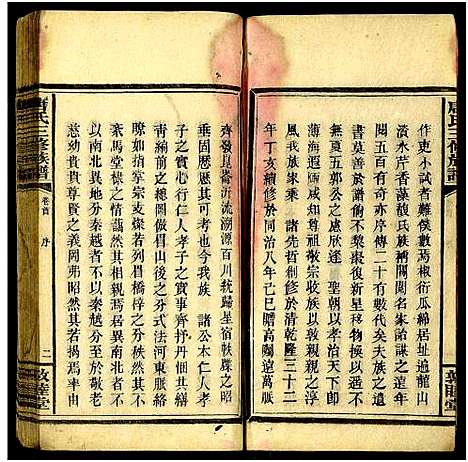 唐氏三修族譜
作吏小試者難侯數蕩椒衍瓜綿居址遍龍山
漬水芹香藻馥氏族稱閥閱名家諦謀之遠年
閱五百有奇亦序傳二十有數代矣夫族之有
書莫善於譜倘不黎棗復新星移物換以
無夏五郭公之慮欣逢 聖朝以孝治天下即
薄海遐陬咸知尊祖敬宗收族以敦親親之淳
風我族家乘 諸先哲創修於清乾隆三十二
年丁亥續修於同治八年己巳贈高曷遠萬脈
齊發昆崙沂流溯源百川統歸星宿帙牒之昭
垂固歷歷其可考也今我族 諸公木仁人孝
子之實心行仁人孝子之實事齊抒丹悃共纘
青緗前之總圖倣眉山後之分式法河東脈絡
瞭如指掌宗支縷若列眉橋梓之分秩然
乘馬堂棣之情藹然其相親焉居異南北者不
以南北為秦越者不以地遠為
慈幼貴貴尊賢之義罔弗昭然其若揭焉率由
唐氏三修族譜
卷首 序
二
敦睦堂
敦睦堂